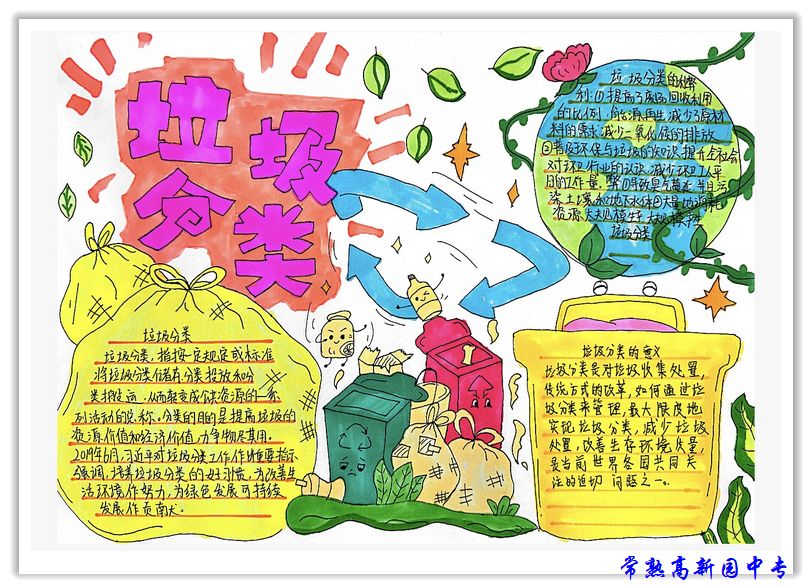 垃圾
分类
垃圾分类的利弊
利:①提高了废品回收利用
的比例,
减少了原材
料的需求,减少二氧化碳的排放
②普及环保与垃圾的知识,提升全社会
对环卫行业的认识,减少环卫工人
的工作量。弊①导致臭气蔓延,并且污
染土壤和地下水体②大量的消耗
资源,大规模生产大规模产生
垃圾分类
垃圾分类
垃圾分类,指按一定规定或标准
将垃圾分类储存分类投放和分
类搬运,从而转变成公共资源的一系
列活动的总称。分类的目的是提高垃圾的
资源价值和经济价值,力争物尽其用。
2019年6月,习近平对垃圾分类工作作出重要指示
强调,培养垃圾分类的好习惯,为改善生
活环境作努力,为绿色发展可持续
发展作贡献。
垃圾分类的意义
垃圾分类是对垃圾收集处置
传统方式的改革,如何通过垃
圾分类管理,最大限度地
实现垃圾分类,减少垃圾
处置,改善生存环境质量,
是当前世界各国共同关
注的迫切问题之一。
常熟高新园中专